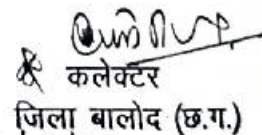 कलेक्टर
जिला बालोद (छ.ग.)